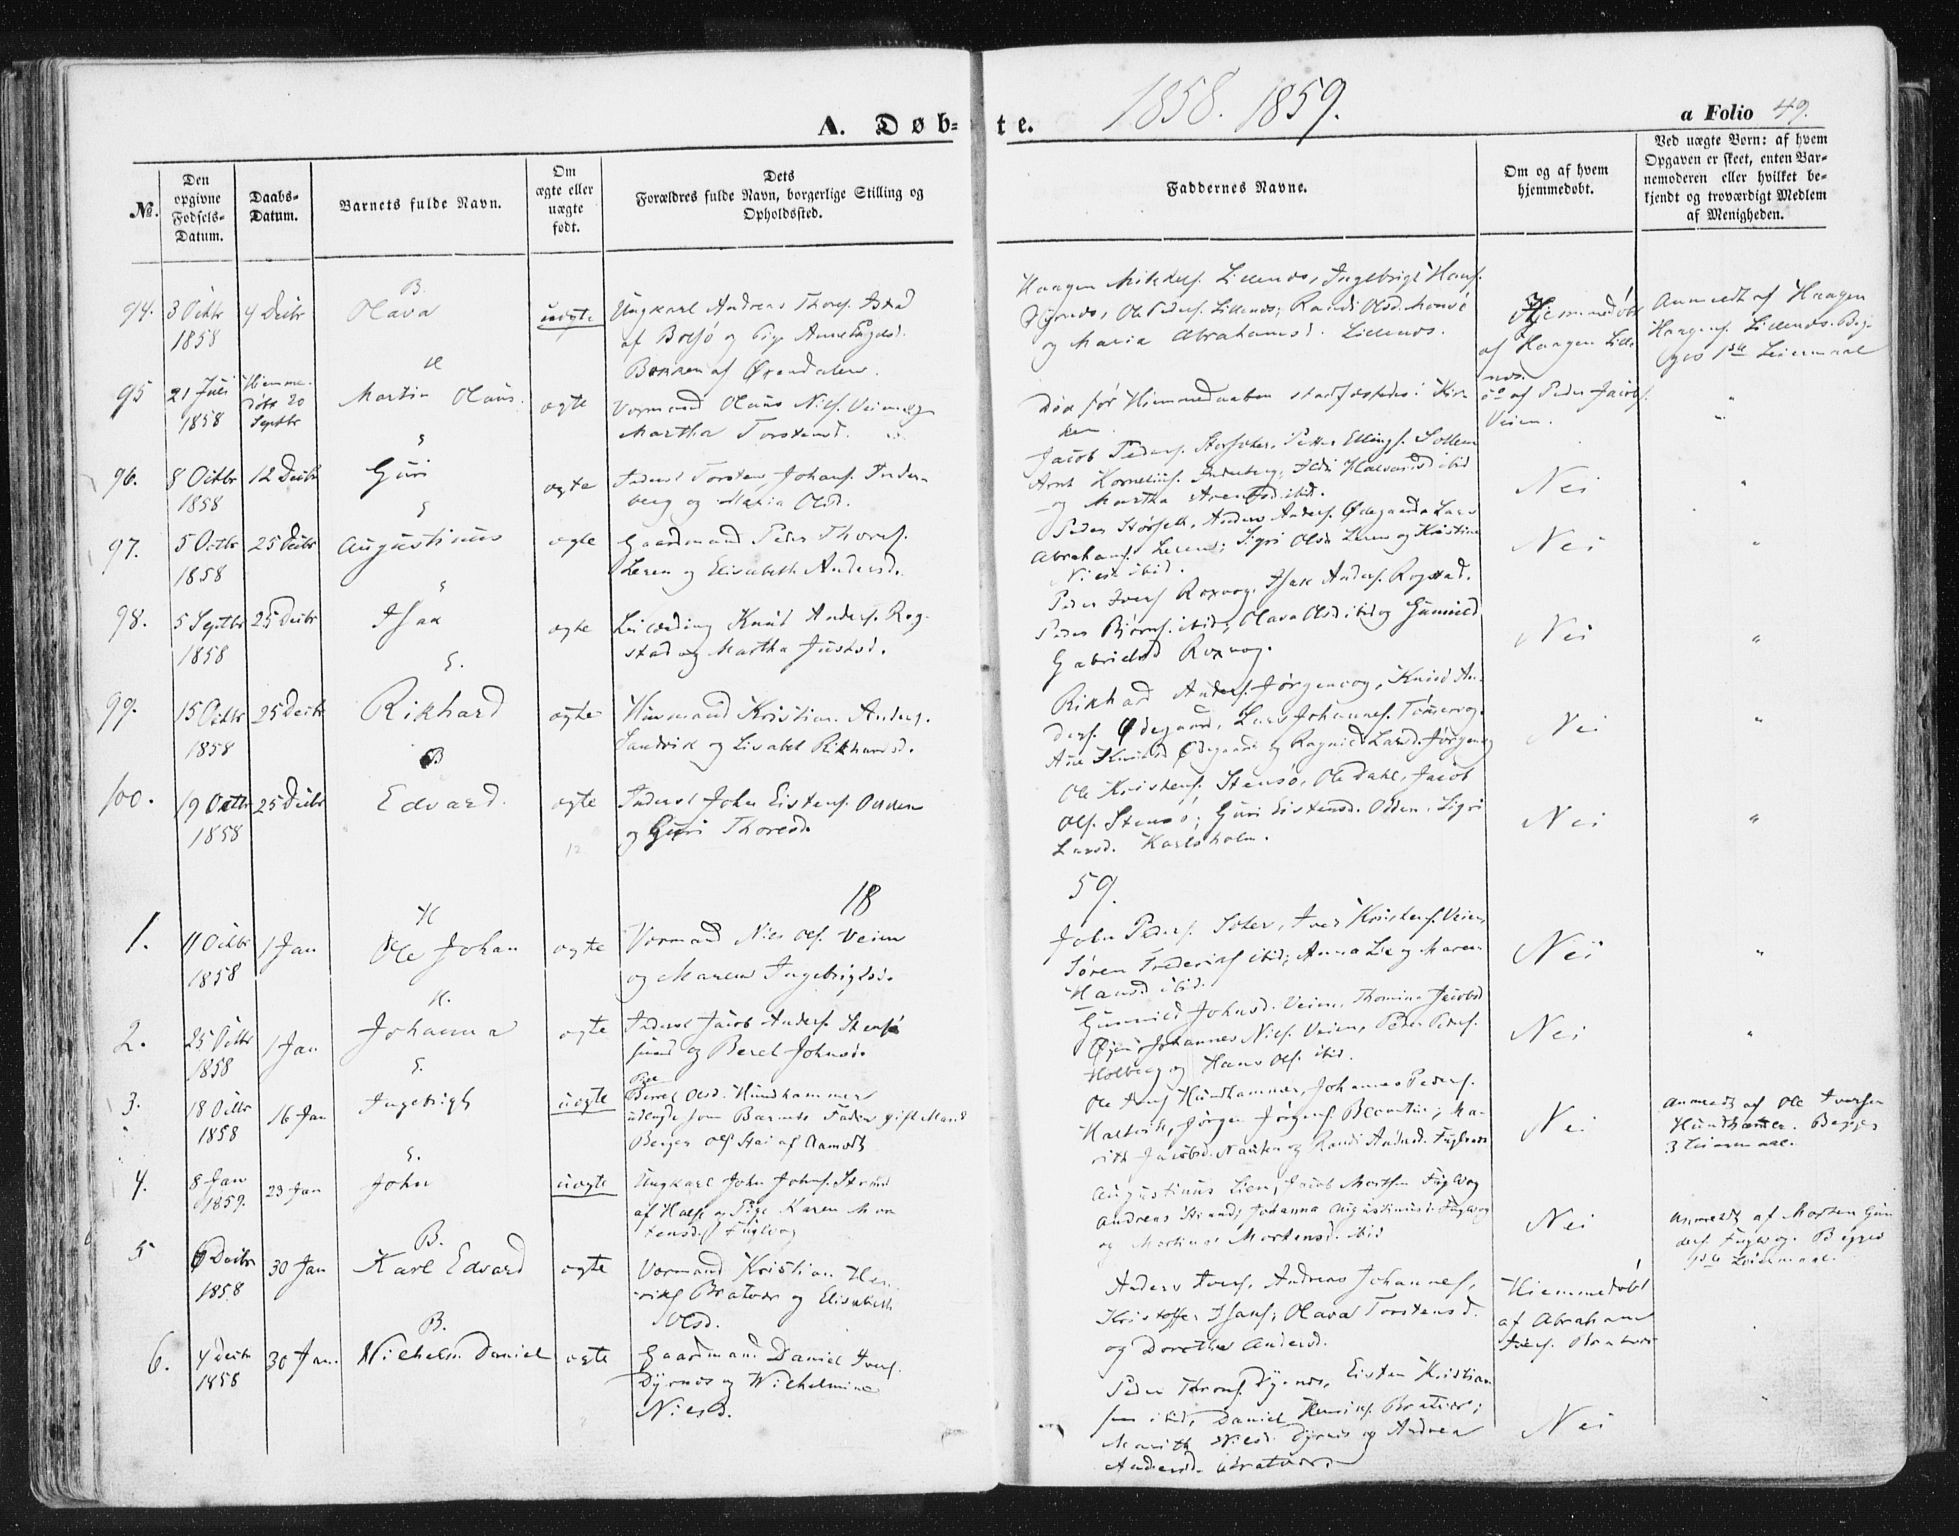 A. Døb-
te.
1858. 1859.
a Folio 49.
No.
Den opgivne Fødsels-Datum.
Daabs-Datum.
Barnets fulde Navn.
Om ægte eller uægte født.
Dets Forældres fulde Navn, borgerlige Stilling og Opholdssted.
Faddernes Navne.
Om og af hvem hjemmedøbt.
Ved uægte Børn: af hvem Opgaven er skeet, enten Barnemoderen eller hvilket bekjendt og troværdigt Medlem af Menigheden.
94.
3 Octbr 1858
4 Decbr
B.
Olava
uægte
Ungkarl Andreas Thors.
og Pige
af Ørendalen.
Haagen
Lillenos, Ingebrigt Hans.
og Maria Abrahamsd. Lillenos.
Hjemmedøbt
af Haagen Lille
nos.
Anmeldt af Haagen
Lillenos. Beg-
ges 1ste Leiermaal
95
21 Juli 1858
Hjemme-
døbt 20
Septbr
H
Martin Olaus.
ægte
Vormand Olaus Niels. Veien og
Martha Torstensd.
Døde før Hjemmedaaben stadfæstedes i Kir-
ken.
af Peder Jacobs.
Veien.
"
96.
8 Octbr 1858
12 Decbr
S
Guri
ægte
Inderst Torsten Johans. Inder-
berg og Maria Olsd.
Jacob Peders.
Petter Ellings.
Arnt Kornelius. Inderberg,
ibid
og Martha
ibid.
Nei
"
97.
5 Octbr 1858
25 Decbr
S
Augustinus
ægte
Gaardmand Peder Thores.
Leren og Elisabeth Andersd.
Peder
Anders Anders. Ødegaard, Lars
Abrahams. Leren; Sigri Olsd. Leren og Kristine
Nielsd. ibid.
Nei
"
98.
5 Septbr 1858
25 Decbr
S
Isak
ægte
Leilænding Knud Anders. Rog-
stad og Martha Justsd.
Peder Ivers. Roxvog, Isak Anders. Rogstad,
Peder Bjørns. ibid, Olava Olsd ibid og Gunnild
Gabrielsd Roxvog.
Nei
"
99.
15 Octbr 1858
25 Decbr
S.
Rikhard
ægte
Huusmand Kristian Anders.
Sandvik og Lisabet Rikhardsd.
Rikhard Anders. Jørgenvog, Knud An-
ders. Ødegaard, Lars Johannes.
Ane Knudsd Ødegaard og Ragnild Larsd. Jørgenvog
Nei
"
100.
19 Octbr 1858
25 Decbr
B
Edvard.
ægte
Inderst John Eistens. Odden
og Guri Thoresd.
12
Ole Kristens. Stensø, Ole Dahl, Jacob
Ols. Stensø; Guri Eistensd. Odden, Sigri
Larsd. Karlsholm.
Nei
"
18
59.
1.
11 Octbr 1858
1 Jan
H
Ole Johan
ægte
Vormand Niels Ols. Veien
og Maren Ingebrigtsd.
John Peders. Soler, Iver Kristens. Veien,
Søren Frederiks ibid; Anna Lie og Maren
Hansd ibid.
Nei
"
2.
25 Octbr 1858
1 Jan
H.
Johanna
ægte
Inderst Jacob Anders. Stensø
sund og Beret Johnsd.
Gunnild Johnsd. Veien, Thomine Jacobsd
Øien, Johannes Niels. Veien, Peder Peders.
Holberg og Hans Ols. ibid.
Nei
"
3.
18 Octbr 1858
16 Jan
S.
Ingebrigt
uægte
Pige
Beret Olsd. Hundhammer
udlagde som Barnets Fader gift Mand
Berger Ols
af Aamodt
Ole Ivers Hundhammer, Johannes Peders.
Jørgen Jørgens.
Ma-
rith Jacobsd. Nausten og Randi Andersd.
Nei
Anmeldt af Ole Iversen
Hundhammer. Begges
3 Leiermaal.
4.
8 Jan 1859.
23 Jan
S.
John
uægte
Ungkarl John Johns. Strand
af Halse og Pige Karen Mor
tensd. Fuglvog
Augustinus Lien, Jacob Mortsen Fuglvog
Andreas Strand, Johanna Augustinusd. Fuglvog
og
Mortensd. ibid
Nei
Anmeldt af Morten Gun
ders. Fuglvog. Begges
1ste Leiermaal.
5
6 Decbr 1858
30 Jan
B.
Karl Edvard
ægte
Vormand Kristian Hen
riks Bratvær og Elisabeth
Olsd.
Anders Ivers, Andreas Johannes,
Kristoffer Isaks; Olava Torstensd.
og Dorothea Andersd.
Hjemmedøbt
af Abraham
Ivers. Bratvær
6.
4 Decbr 1858
30 Jan.
B.
Wilhelm Daniel
ægte
Gaardmand Daniel Ivers.
Dyrnes og Wilhelmine
Nielsd.
Peder Thores Dyrnes, Eisten Kristian
sen ibid, Daniel Henriks. Bratvær;
Marith Nielsd. Dyrnes og Andrea
Andersd. Bratvær.
Nei
"